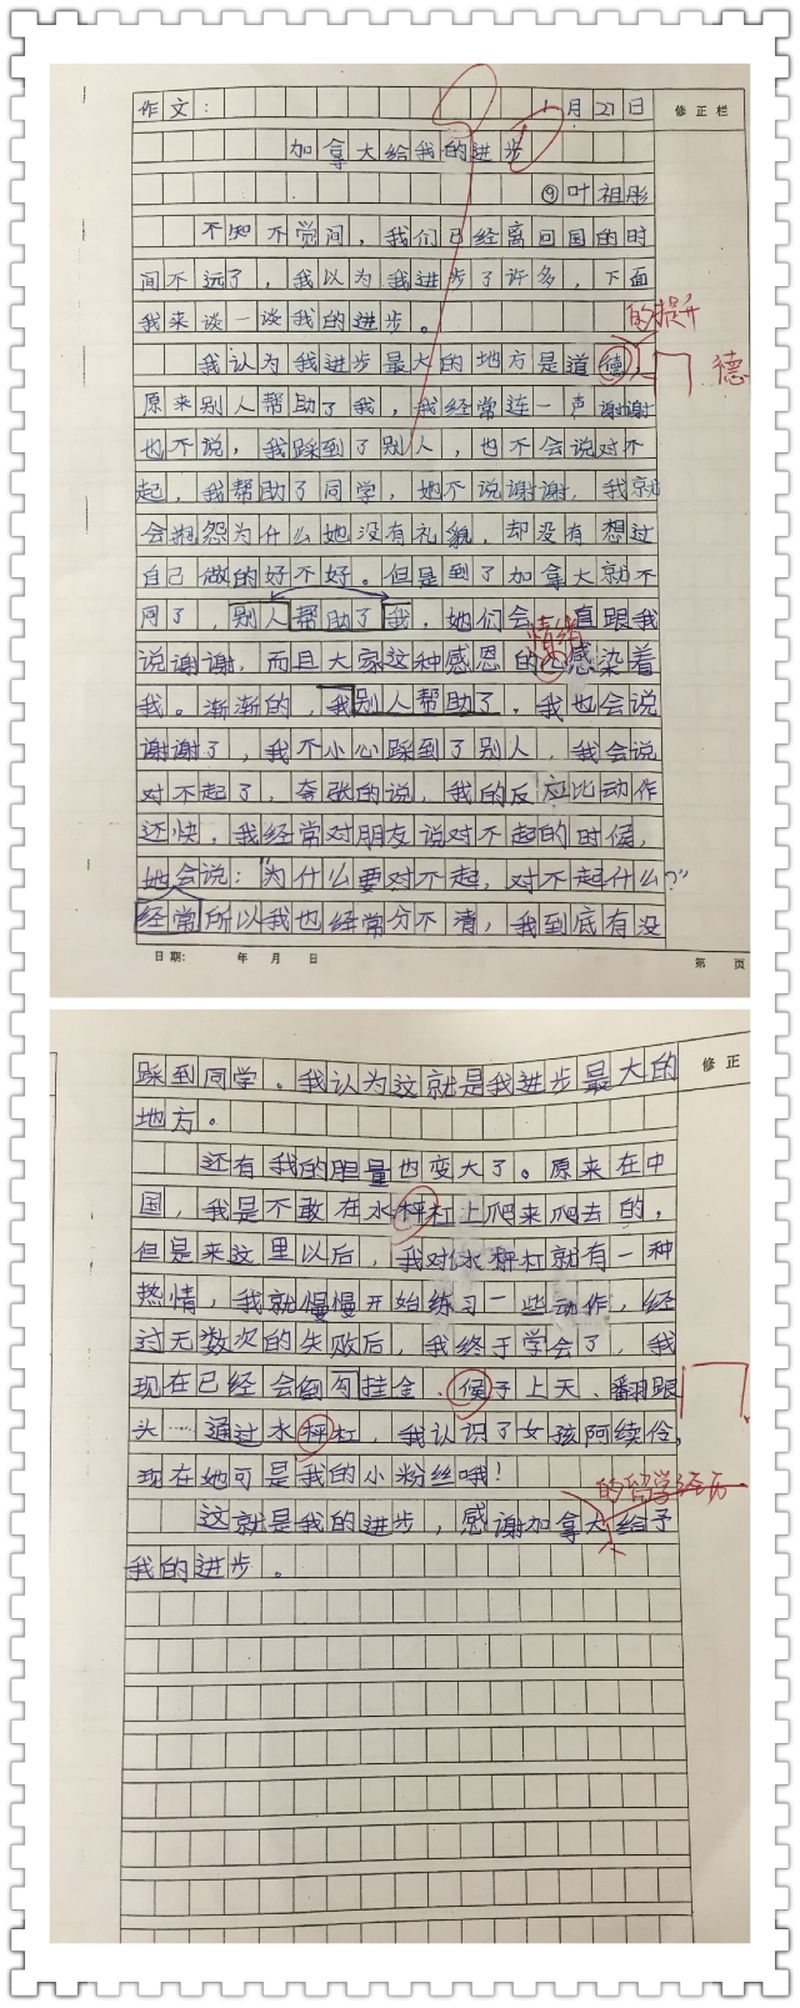 作文： 1月21日
修正栏
加拿大给我的进步
⑨叶祖彤
不知不觉间，我们已经离回国的时
间不远了，我以为我进步了许多，下面
我来谈一谈我的进步。
的提升
我认为我进步最大的地方是道德，
德
原来别人帮助了我，我经常连一声谢谢
也不说，我踩到了别人，也不会说对不
起，我帮助了同学，她不说谢谢，我就
会抱怨为什么她没有礼貌，却没有想过
自己做的好不好。但是到了加拿大就不
同了，别人帮助了我，她们会一直跟我
情绪
说谢谢，而且大家这种感恩的心感染着
我。渐渐的，我别人帮助了，我也会说
谢谢了，我不小心踩到了别人，我会说
对不起了，夸张的说，我的反应比动作
还快，我经常对朋友说对不起的时候，
她会说：“为什么要对不起，对不起什么？”
经常所以我也经常分不清，我到底有没
日期： 年 月 日
第 页
修正
踩到同学。我认为这就是我进步最大的
地方。
还有我的胆量也变大了。原来在中
国，我是不敢在水秤杠上爬来爬去的，
但是来这里以后，我对水秤杠就有一种
热情，我就慢慢开始练习一些动作，经
过无数次的失败后，我终于学会了，我
现在已经会倒勾挂金、候子上天、翻跟
头……通过水秤杠，我认识了女孩阿续伶，
现在她可是我的小粉丝哦！
的留学经历
这就是我的进步，感谢加拿大给予
我的进步。